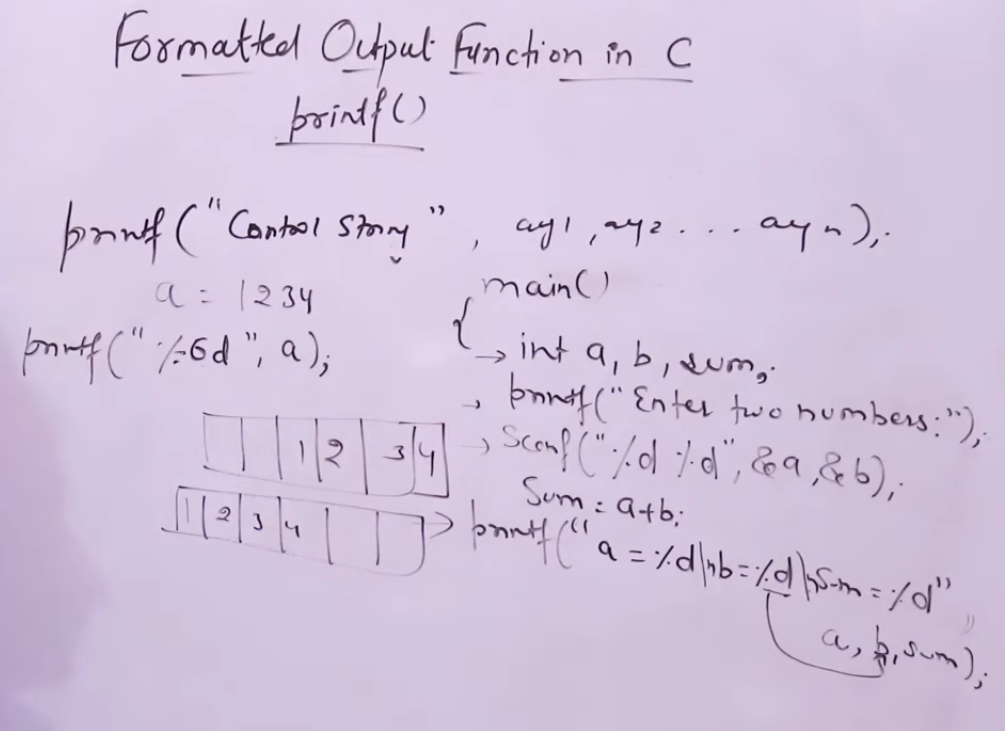 Formatted Output Function in C
printf()
printf("Control String", arg1, arg2 ... argn);
a = 1234
printf("%-6d", a);
1 2 3 4
1 2 3 4
main()
{
→ int a, b, sum;
→ printf("Enter two numbers:");
→ Scanf("%d %d", &a, &b);
Sum = a+b;
> printf("a = %d\nb = %d\nSum = %d"
a, b, sum);